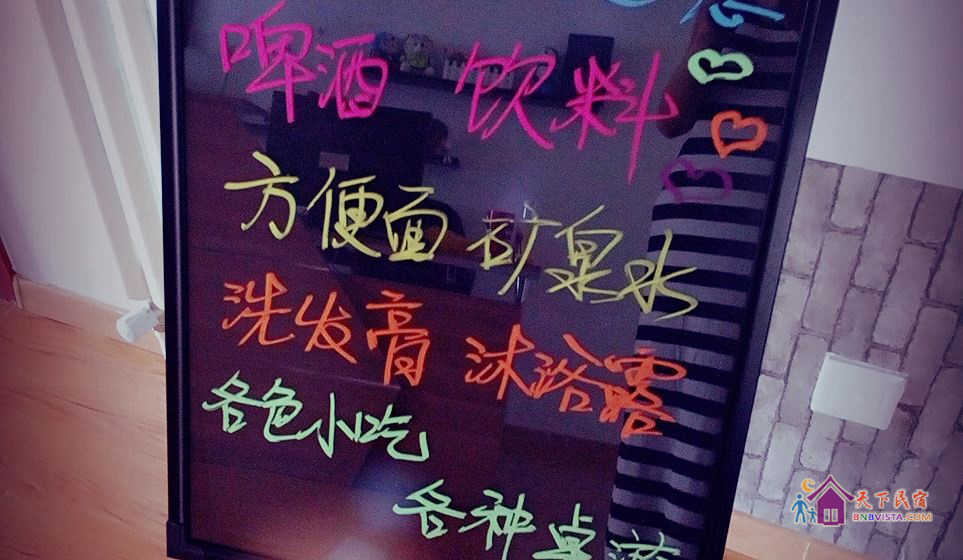 啤酒 饮料
方便面 矿泉水
洗发膏 沐浴露
各色小吃
各种桌游
天下民宿
BNBVISTA.COM